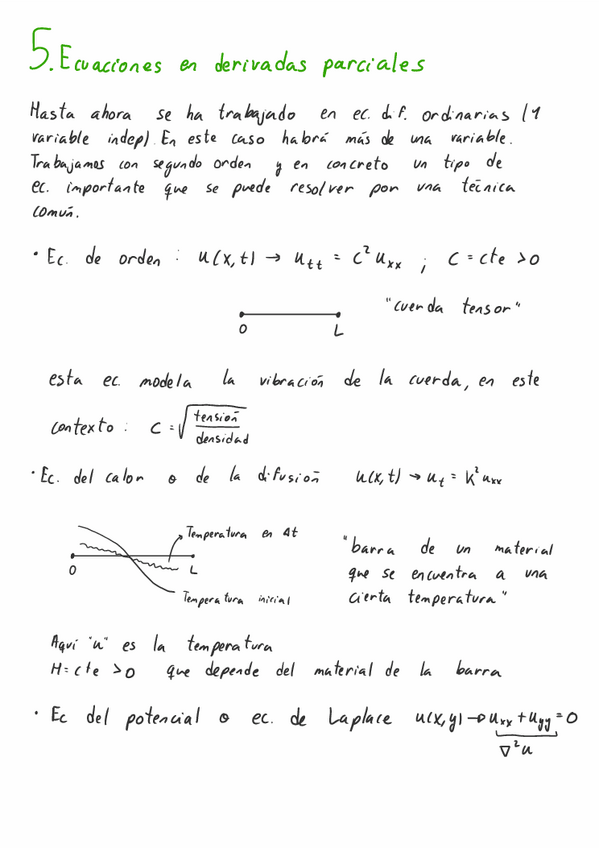 5. Ecuaciones en derivadas parciales
Hasta ahora se ha trabajado en ec. dif. ordinarias (1
variable indep). En este caso habrá más de una variable.
Trabajamos con segundo orden y en concreto un tipo de
ec. importante que se puede resolver por una técnica
común.
• Ec. de orden : u(x,t) → u_tt = c² u_xx ; C = cte > 0
"cuerda tensor"
0 L
esta ec. modela la vibración de la cuerda, en este
contexto : C = √(tensión/densidad)
• Ec. del calor o de la difusión u(x,t) → u_t = K² u_xx
Temperatura en Δt
0 L
Temperatura inicial
"barra de un material
que se encuentra a una
cierta temperatura"
Aquí "u" es la temperatura
H = cte > 0 que depende del material de la barra
• Ec del potencial o ec. de Laplace u(x,y) → u_xx + u_yy = 0
∇²u